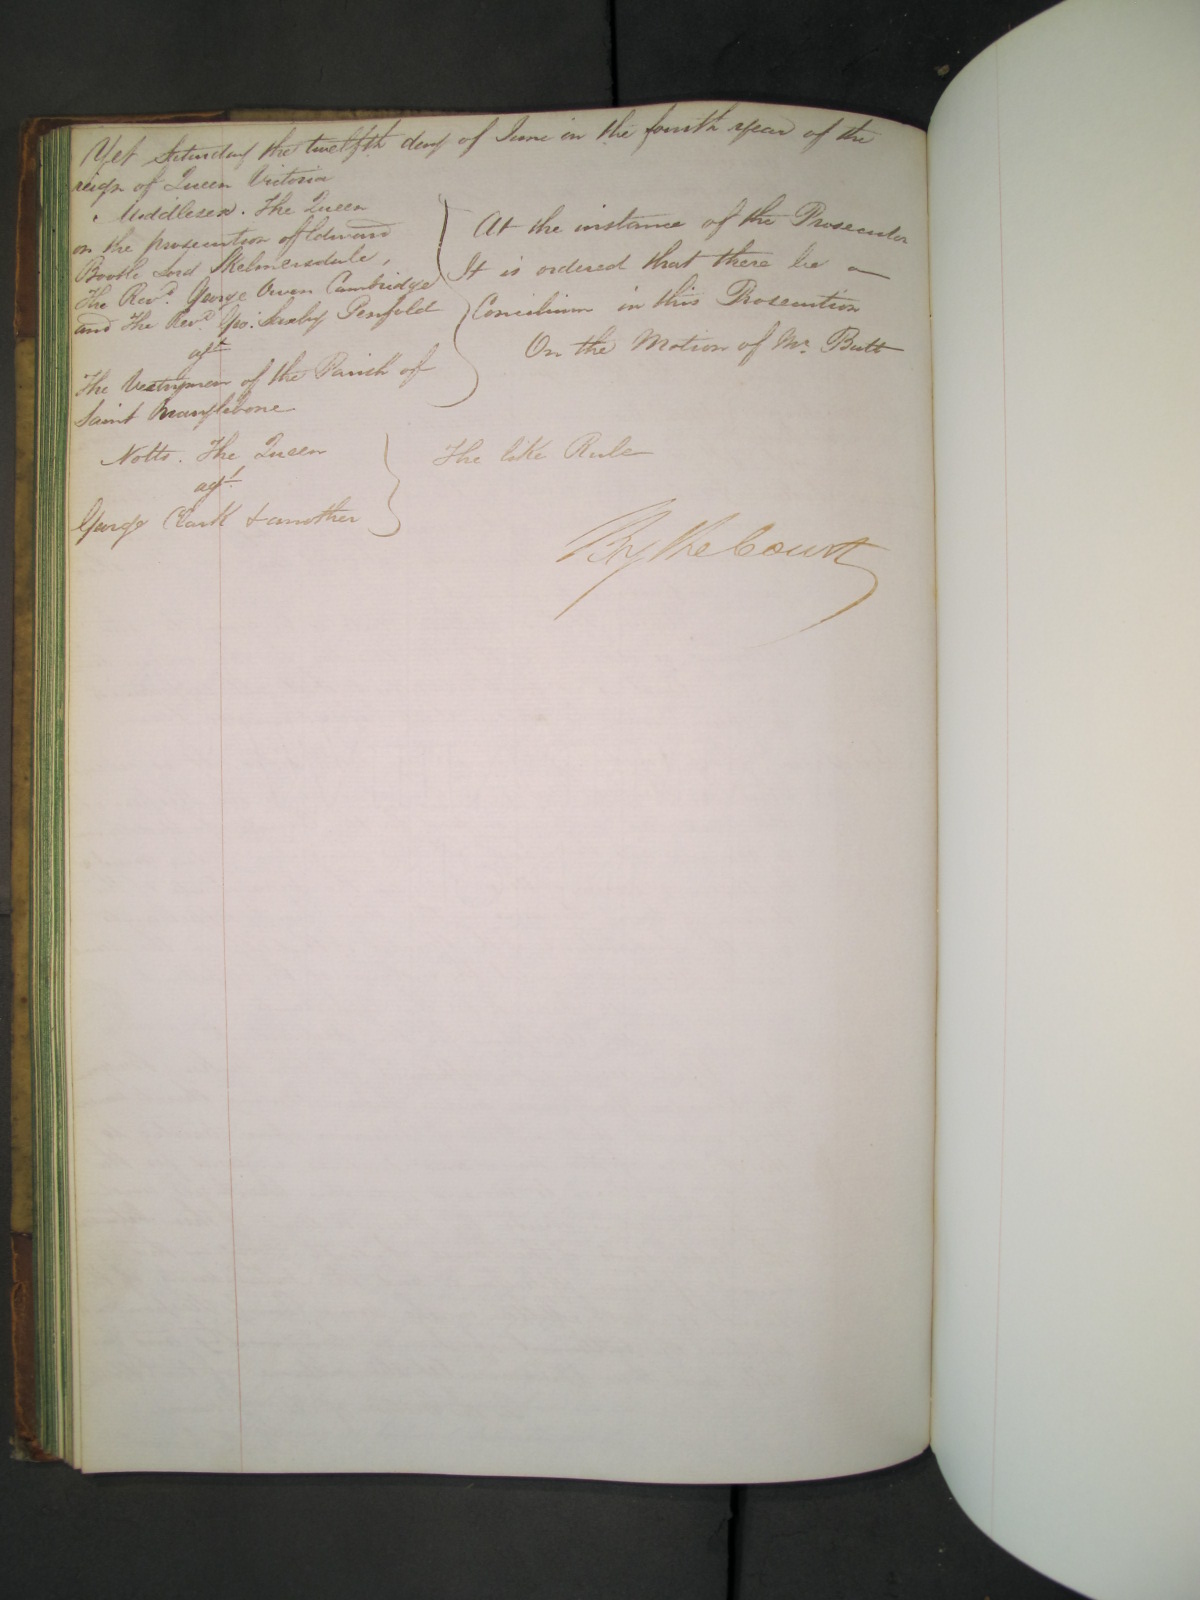 Yet Saturday the twelfth day of June in the fourth year of the
reign of Queen Victoria
Middlesex. The Queen
on the prosecution of Edward
Bootle Lord Skelmersdale,
The Revd. George Owen Cambridge
and The Revd. Geo: Saxby Penfold
agt
The Vestrymen of the Parish of
Saint Marylebone
At the instance of the Prosecutor
It is ordered that there be a
Concilium in this Prosecution
On the Motion of Mr. Butt
Notts. The Queen
agt.
George Clark & another
The like Rule
By the Court